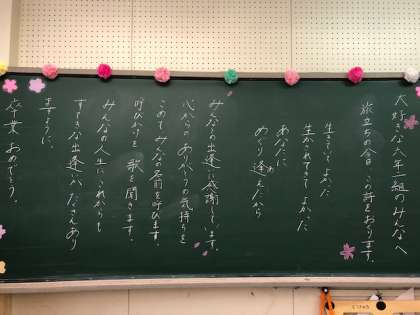 大好きな六年一組のみんなへ
旅立ちの今日、この詩をおくります。
生きていてよかった
生かされてきてよかった
あなたに
めぐり逢えたから
みんなとの出逢いに感謝しています。
心からのありがとうの気持ちを
こめてみんなの名前を呼びます。
呼びかけを、歌を聞きます。
みんなの人生に、これからも
すてきな出逢いが、たくさんあり
ますように。
卒業おめでとう。